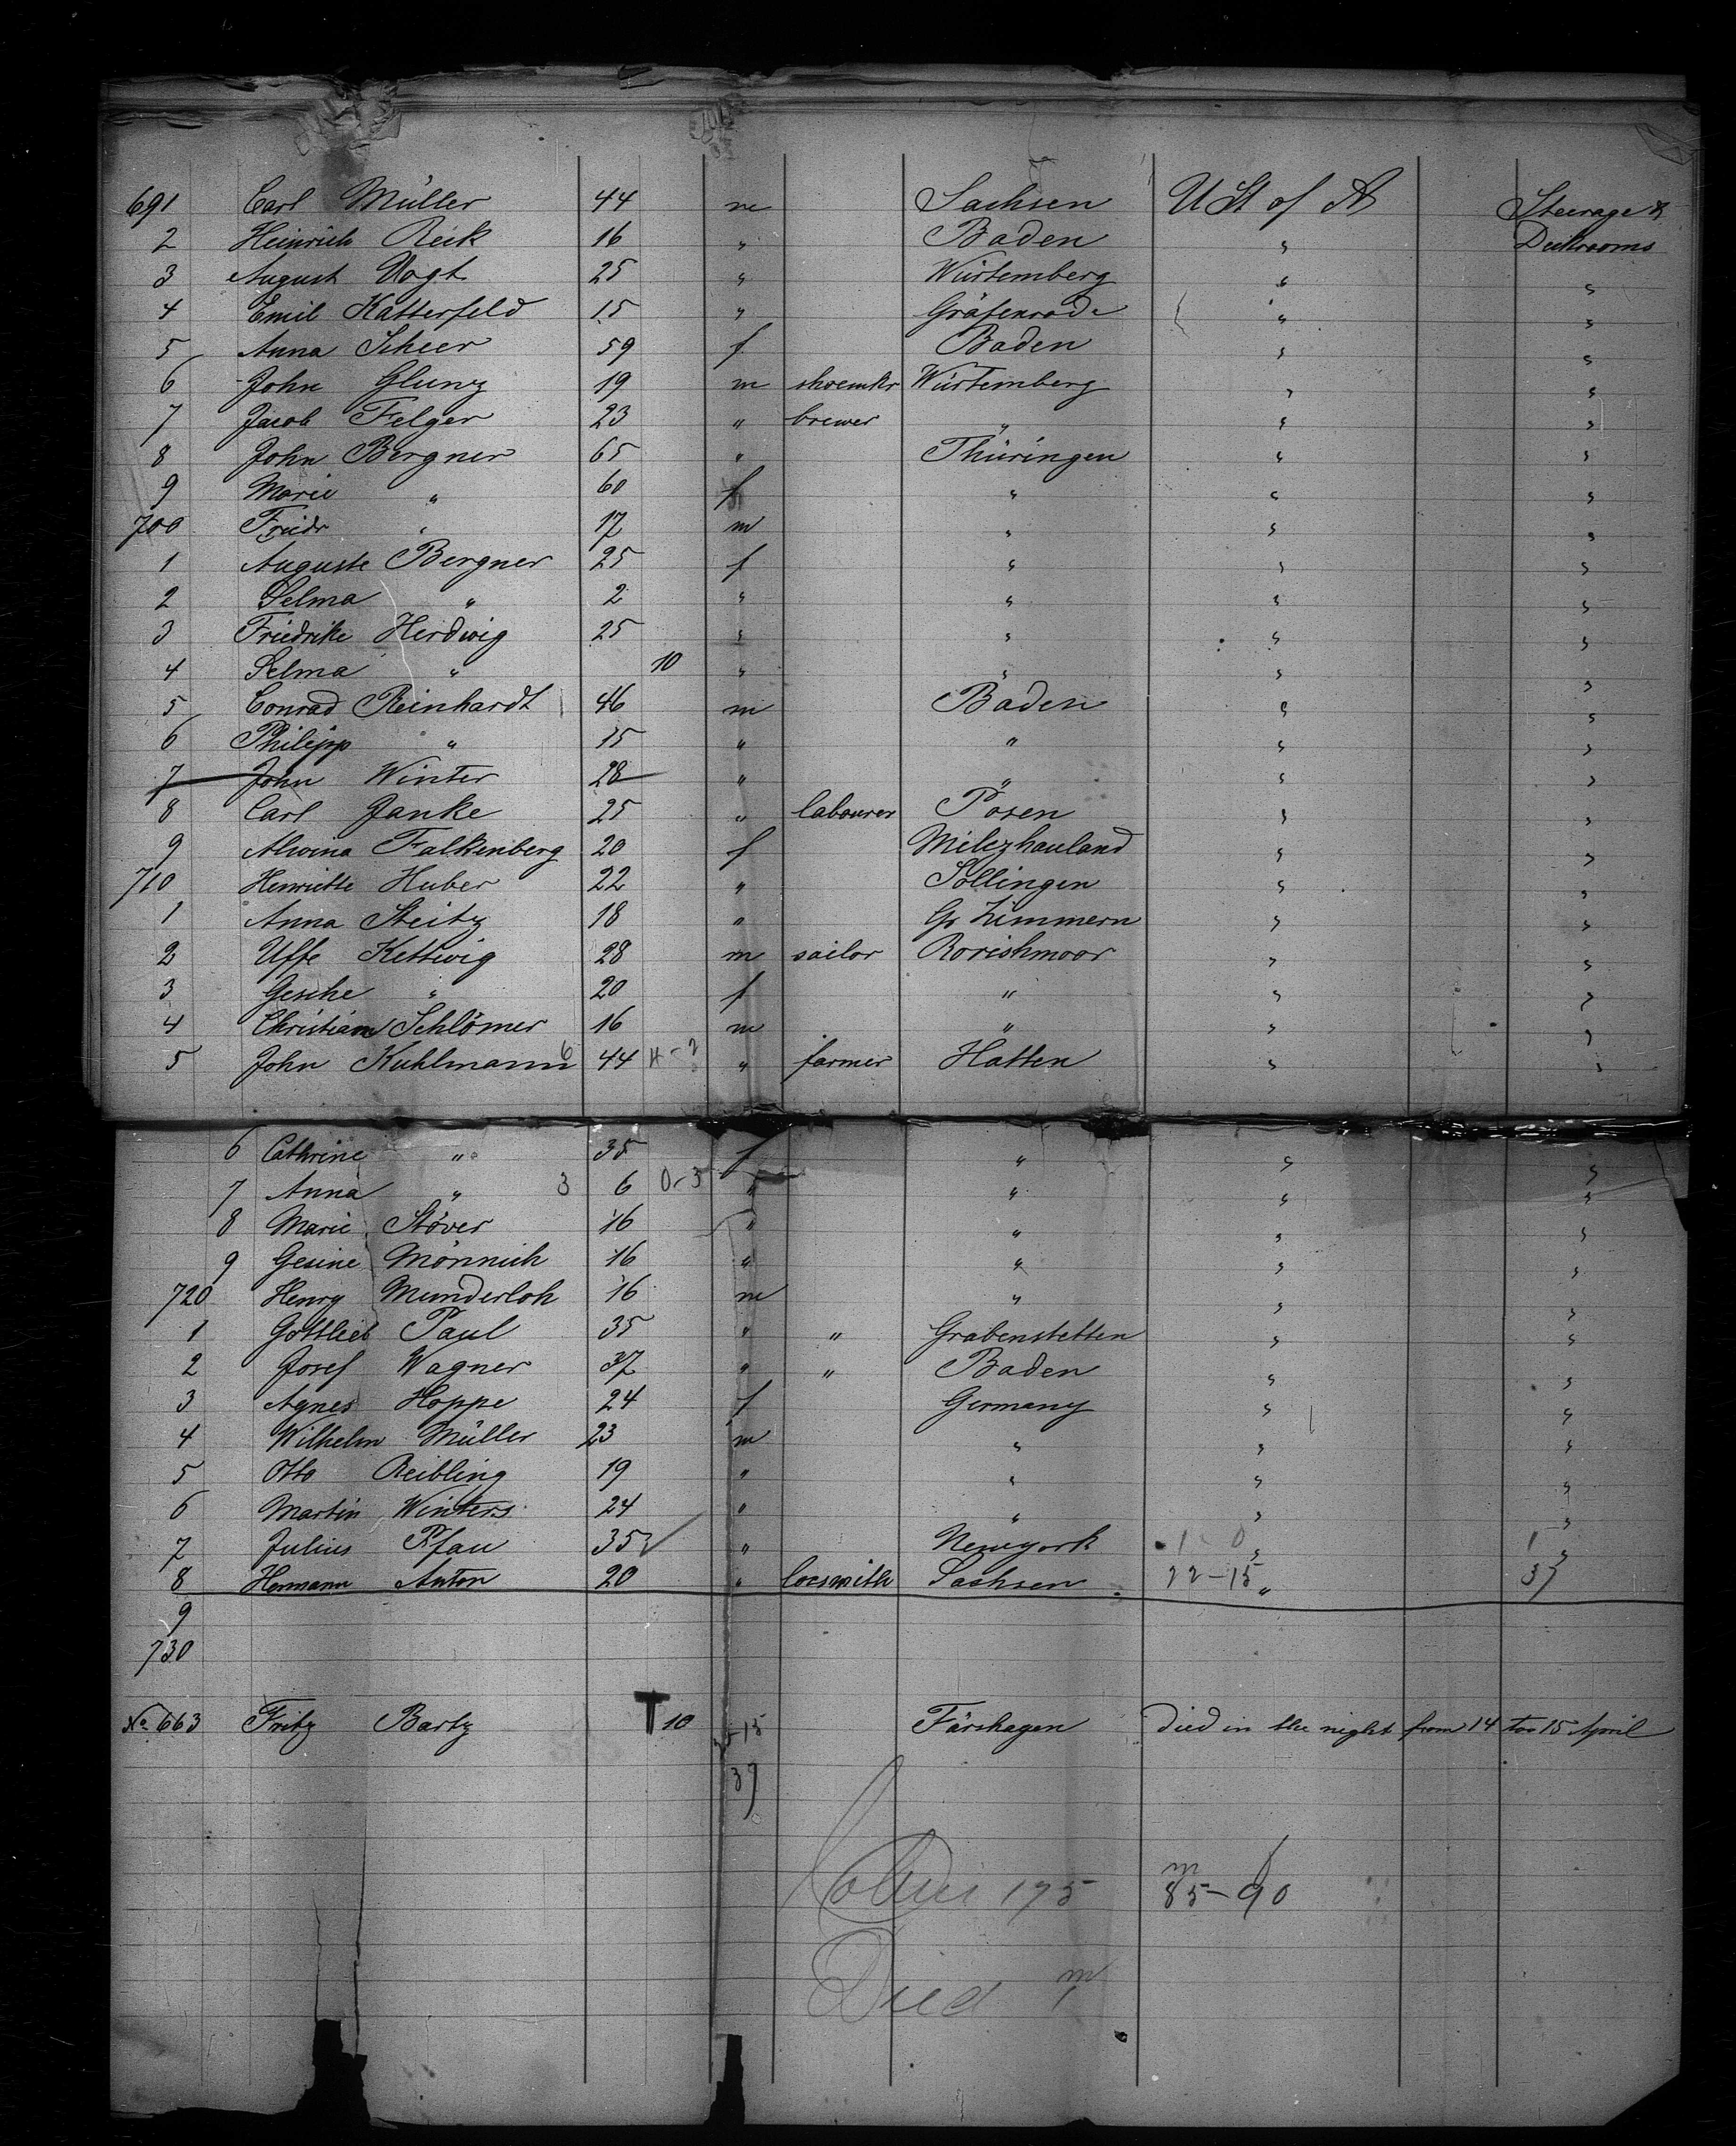 691 Carl Müller 44 m Sachsen U St of A Steerage &
2 Heinrich Reik 16 " Baden " Deckrooms
3 August Vogt 25 " Würtemberg " "
4 Emil Katterfeld 15 " Gräfenrode " "
5 Anna Scheer 59 f Baden " "
6 John Glunz 19 m shoemkr Würtemberg " "
7 Jacob Felger 23 " brewer " " "
8 John Bergner 65 " Thüringen " "
9 Marie " 60 f " " "
700 Friedr " 17 m " " "
1 Auguste Bergner 25 f " " "
2 Selma " 2 " " " "
3 Friedrike Herdwig 25 " " " "
4 Selma " 10 " " " "
5 Conrad Reinhardt 46 m Baden " "
6 Philipp " 15 " " " "
7 John Winter 28 " " " "
8 Carl Janke 25 " labourer Posen " "
9 Alwina Falkenberg 20 f Milezhauland " "
710 Henriette Huber 22 " Söllingen " "
1 Anna Steitz 18 " Gr Zimmern " "
2 Uffe Kettwig 28 m sailor Rorishmoor " "
3 Gesche " 20 f " " "
4 Christian Schlömer 16 m " " "
5 John Kuhlmann 6 44 " farmer Hatten " "
6 Cathrine " 35 f " " "
7 Anna " 3 6 0-3 " " " "
8 Marie Stöver 16 " " " "
9 Gesine Mönnich 16 " " " "
720 Henry Munderloh 16 m " " "
1 Gottlieb Paul 35 " " Grabenstetten " "
2 Josef Wagner 37 " " Baden " "
3 Agnes Hoppe 24 f Germany " "
4 Wilhelm Müller 23 m " " "
5 Otto Reibling 19 " " " "
6 Martin Winters 24 " " " "
7 Julius Pfau 35 " Newyork 1-0 " 1 "
8 Hermann Anton 20 " locsmith Sachsen 22-15 " 37
9
730
No 663 Fritz Bartz T 10 Färshagen Died in the night from 14 too 15 April
37
175 85-90
m f
Died 1 m